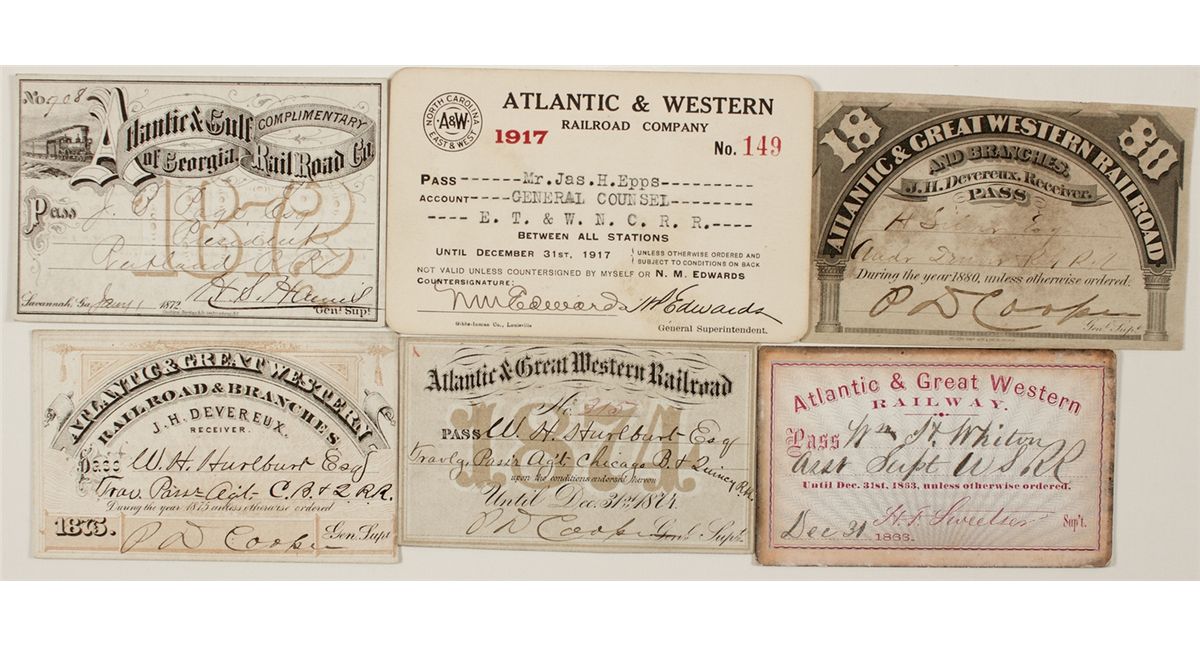 No. 908
Atlantic & Gulf
COMPLIMENTARY
of Georgia, Rail Road Co.
1872
Pass J. B. Page Esq
President
Rutland R R
Savannah, Ga. Jany 1 1872
Genl. Supt.
NORTH CAROLINA
A&W
EAST & WEST
ATLANTIC & WESTERN
RAILROAD COMPANY
1917
No. 149
PASS Mr. Jas. H. Epps
ACCOUNT GENERAL COUNSEL
E. T. & W. N. C. R. R.
BETWEEN ALL STATIONS
UNTIL DECEMBER 31ST, 1917
UNLESS OTHERWISE ORDERED AND
SUBJECT TO CONDITIONS ON BACK
NOT VALID UNLESS COUNTERSIGNED BY MYSELF OR N. M. EDWARDS
COUNTERSIGNATURE:
N M Edwards
H Edwards
Gibbs-Inman Co., Louisville
General Superintendent.
1880
ATLANTIC & GREAT WESTERN RAILROAD
AND BRANCHES,
J. H. Devereux, Receiver.
PASS
During the year 1880, unless otherwise ordered.
P D Cooper
Genl. Supt.
ATLANTIC & GREAT WESTERN
RAILROAD & BRANCHES
J. H. DEVEREUX,
RECEIVER.
Pass W. H. Hurlburt Esq
Trav. Passr Agt- C. B. & Q RR.
During the year 1875 unless otherwise ordered
1875.
P D Cooper
Gen. Supt
Atlantic & Great Western Railroad
1874
No. 315
PASS W. H. Hurlburt Esq
Travlg. Passr Agt. Chicago B. & Quincy R.R.
upon the conditions endorsed hereon
Until Dec. 31st 1874.
P D Cooper Genl. Supt.
Atlantic & Great Western
RAILWAY.
Pass Wm H. Whiton
Asst Supt U S R R
Until Dec. 31st, 1863, unless otherwise ordered.
Dec 31 1863.
H. F. Sweetser
Sup't.